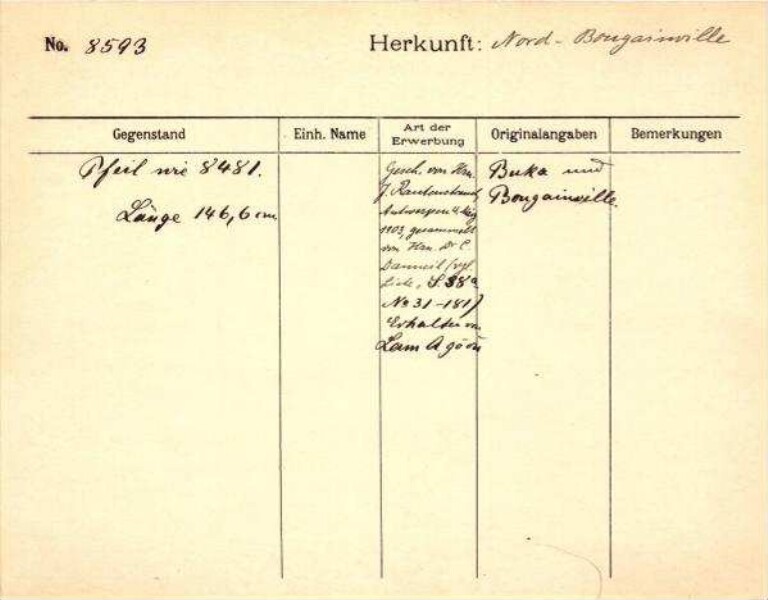 No. 8593 Herkunft: Nord-Bougainville
Gegenstand Einh. Name Art der Erwerbung Originalangaben Bemerkungen
Pfeil wie 8481.
Länge 146,6 cm
Gesch. von Hrn.
J. Rautenstrauch
Antwerpen 4. Mai
1903, gesammelt
von Hrn. Dr. C.
Danneil (vgl.
Liste, S. 38a
No 31-181)
Erhalten von
Lam Agoon
Buka und
Bougainville.